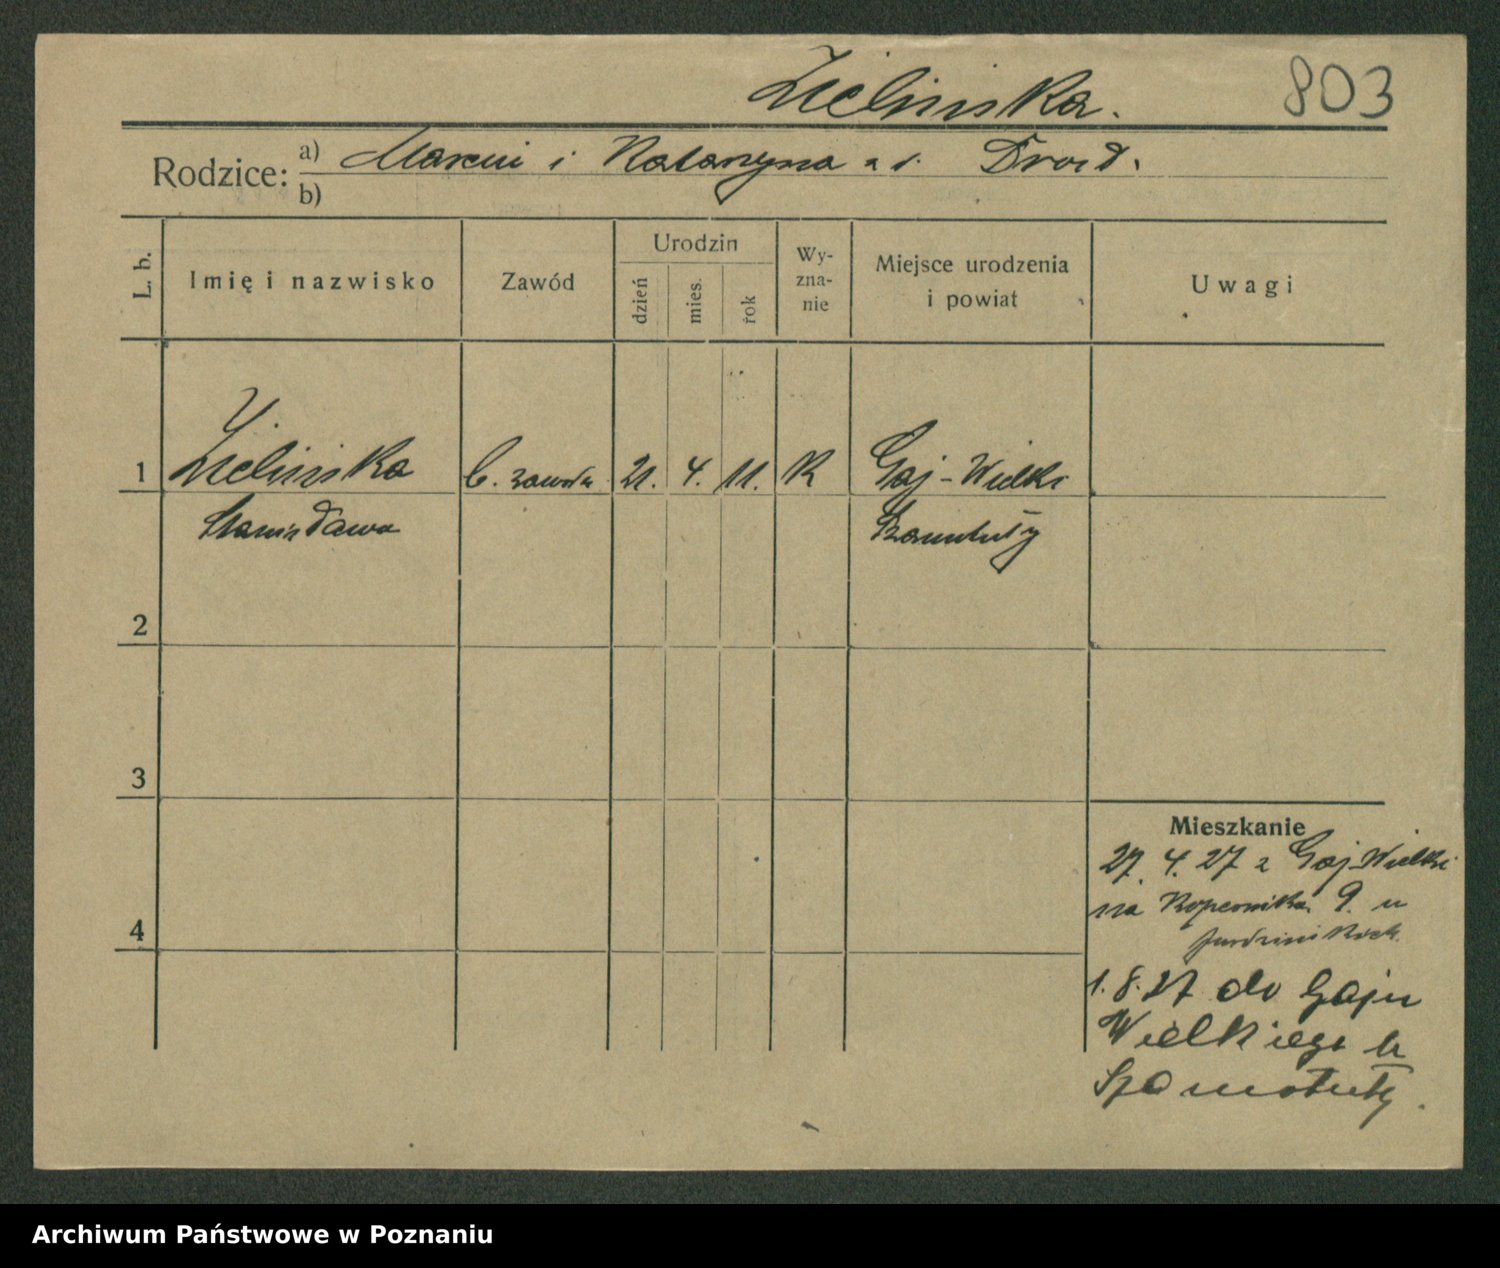 Zielińska.
803
Rodzice:
a) Marcin i Katarzyna z d. Droźd.
b)
L. b.
Imię i nazwisko
Zawód
Urodzin
dzień
mies.
rok
Wy-
zna-
nie
Miejsce urodzenia
i powiat
Uwagi
1
Zielińska
Stanisława
b. zawodu
21.
4.
11.
K
Gaj-Wielki
Szamotuły
2
3
4
Mieszkanie
27. 4. 27 z Gaj-Wielki
na Kopernika 9. u
1. 8. 27 do Gaju
Wielkiego
Szamotuły.
Archiwum Państwowe w Poznaniu